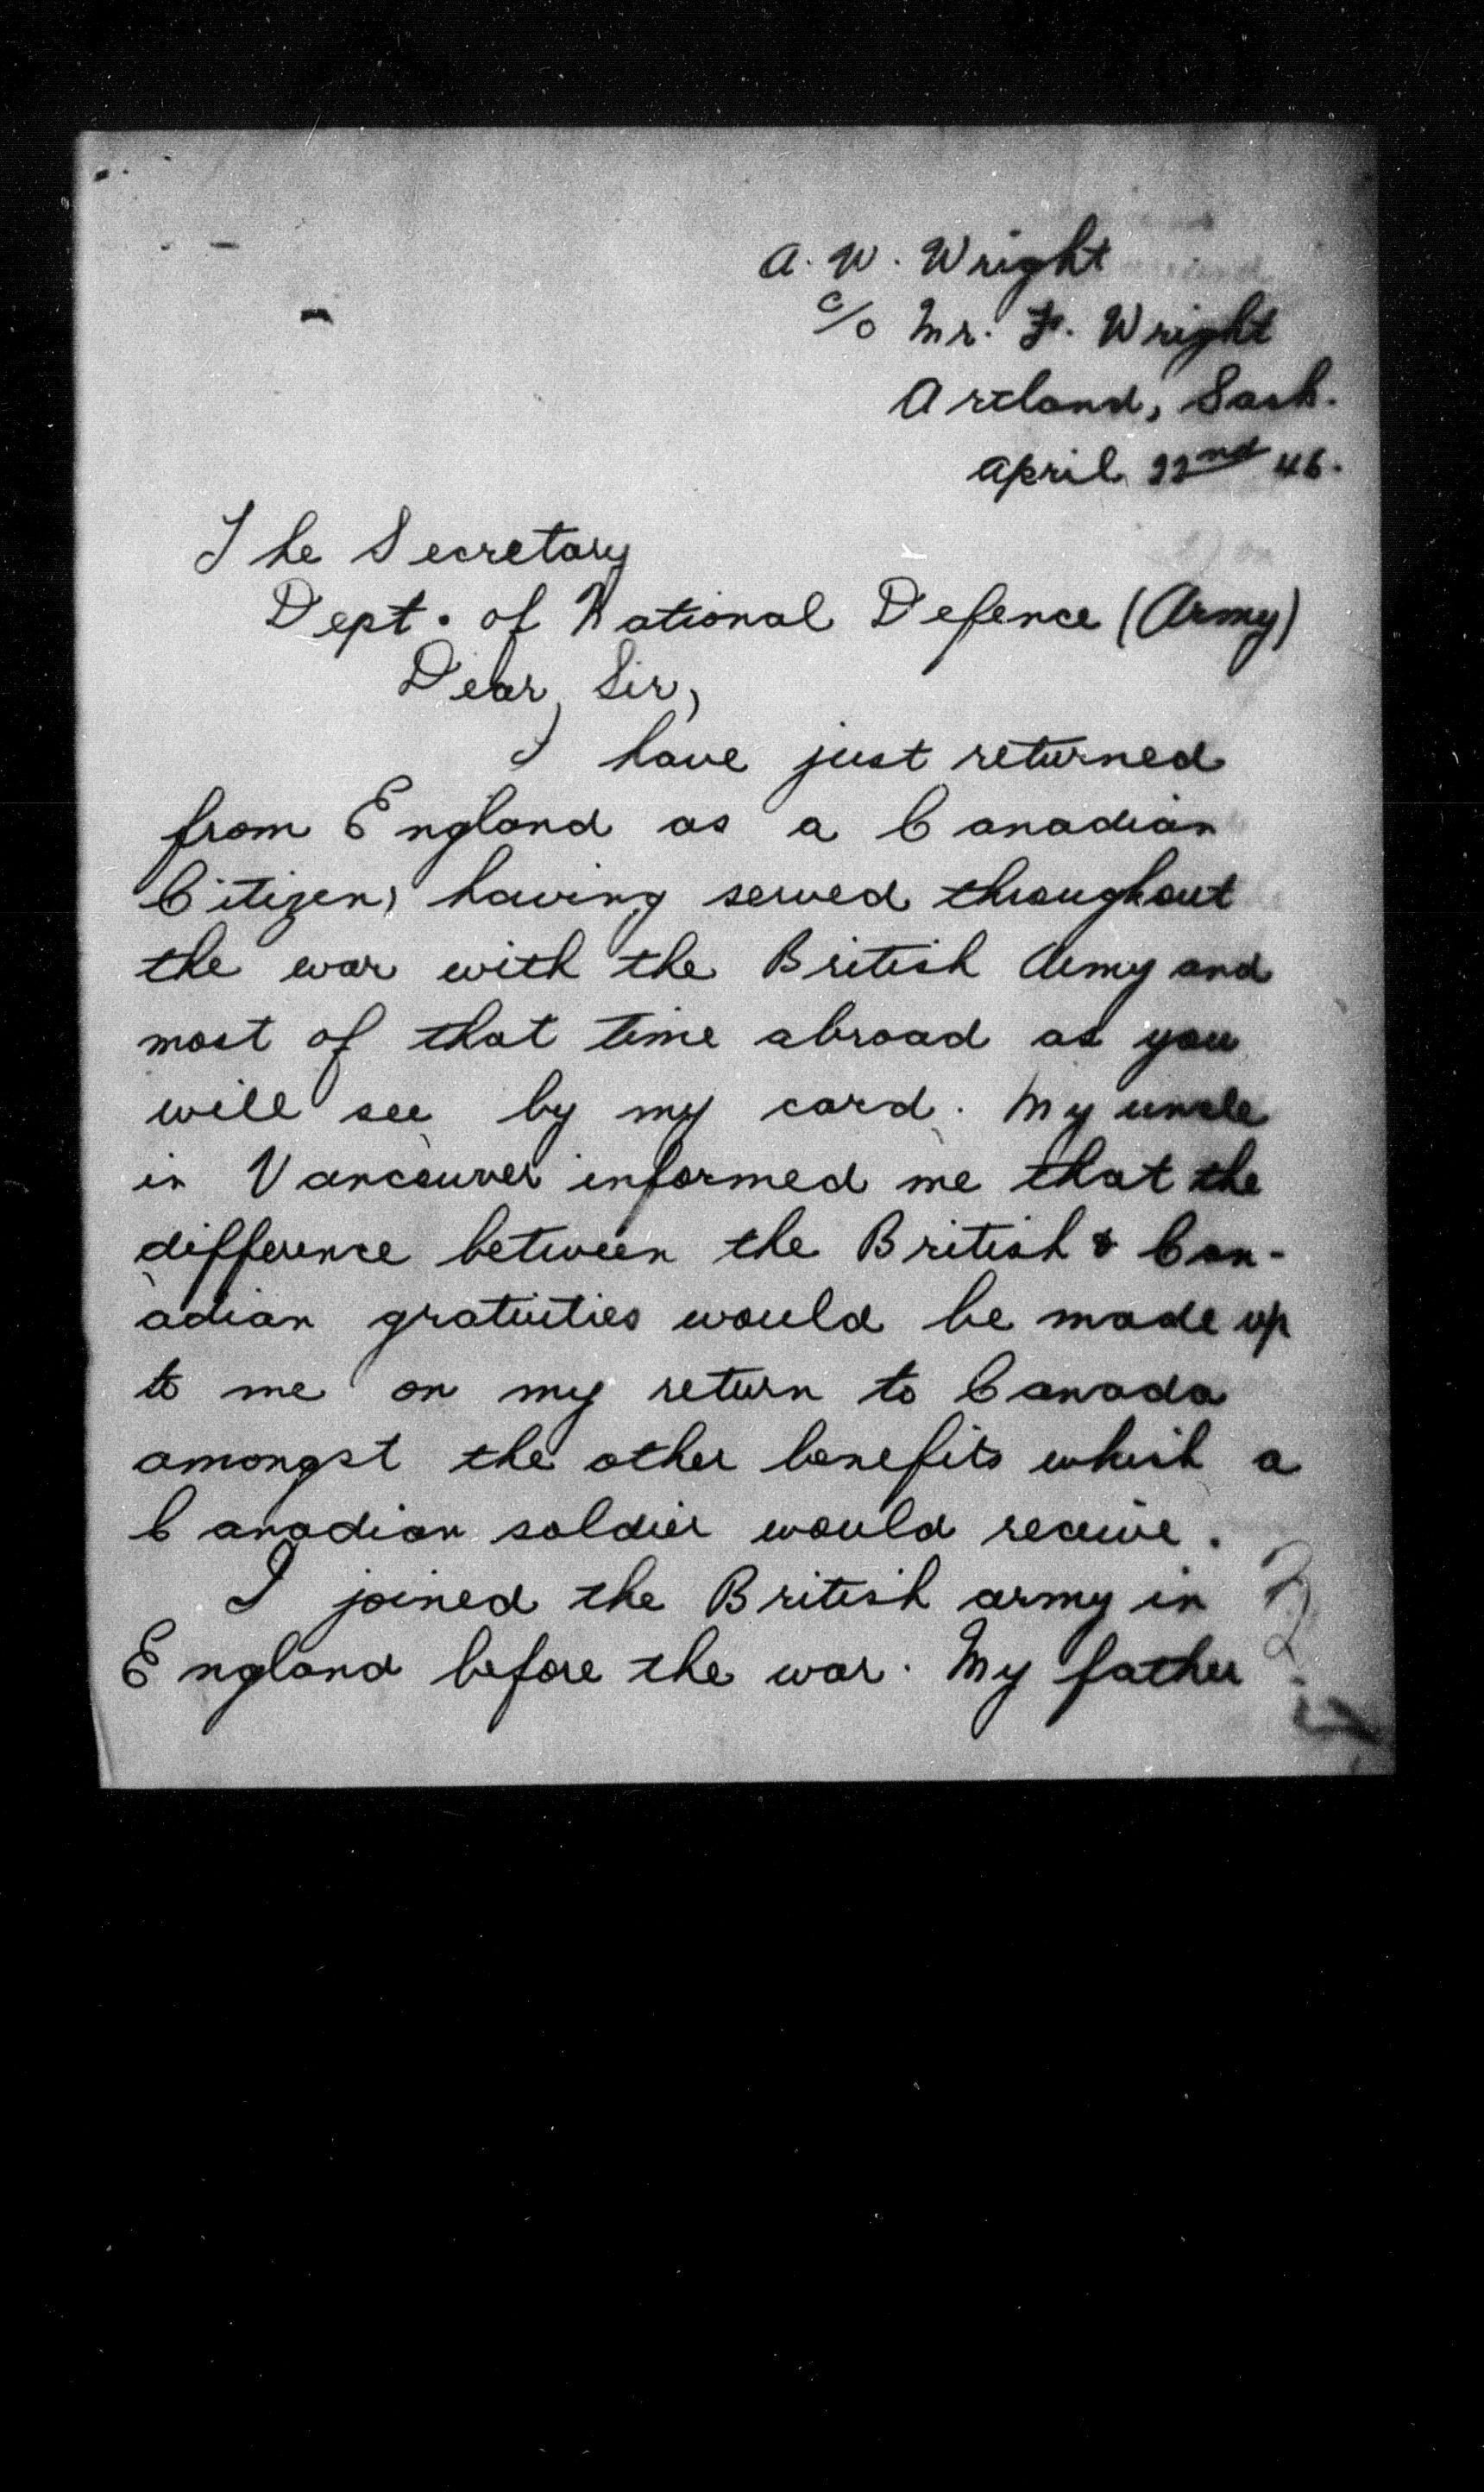 A. W. Wright
c/o Mr. F. Wright
Artland, Sask.
April 22nd 46.
The Secretary
Dept. of National Defence (Army)
Dear Sir,
I have just returned
from England as a Canadian
Citizen, having served throughout
the war with the British Army and
most of that time abroad as you
will see by my card. My uncle
in Vancouver informed me that the
difference between the British & Can-
adian gratuities would be made up
to me on my return to Canada
amongst the other benefits which a
Canadian soldier would receive.
I joined the British army in
England before the war. My father